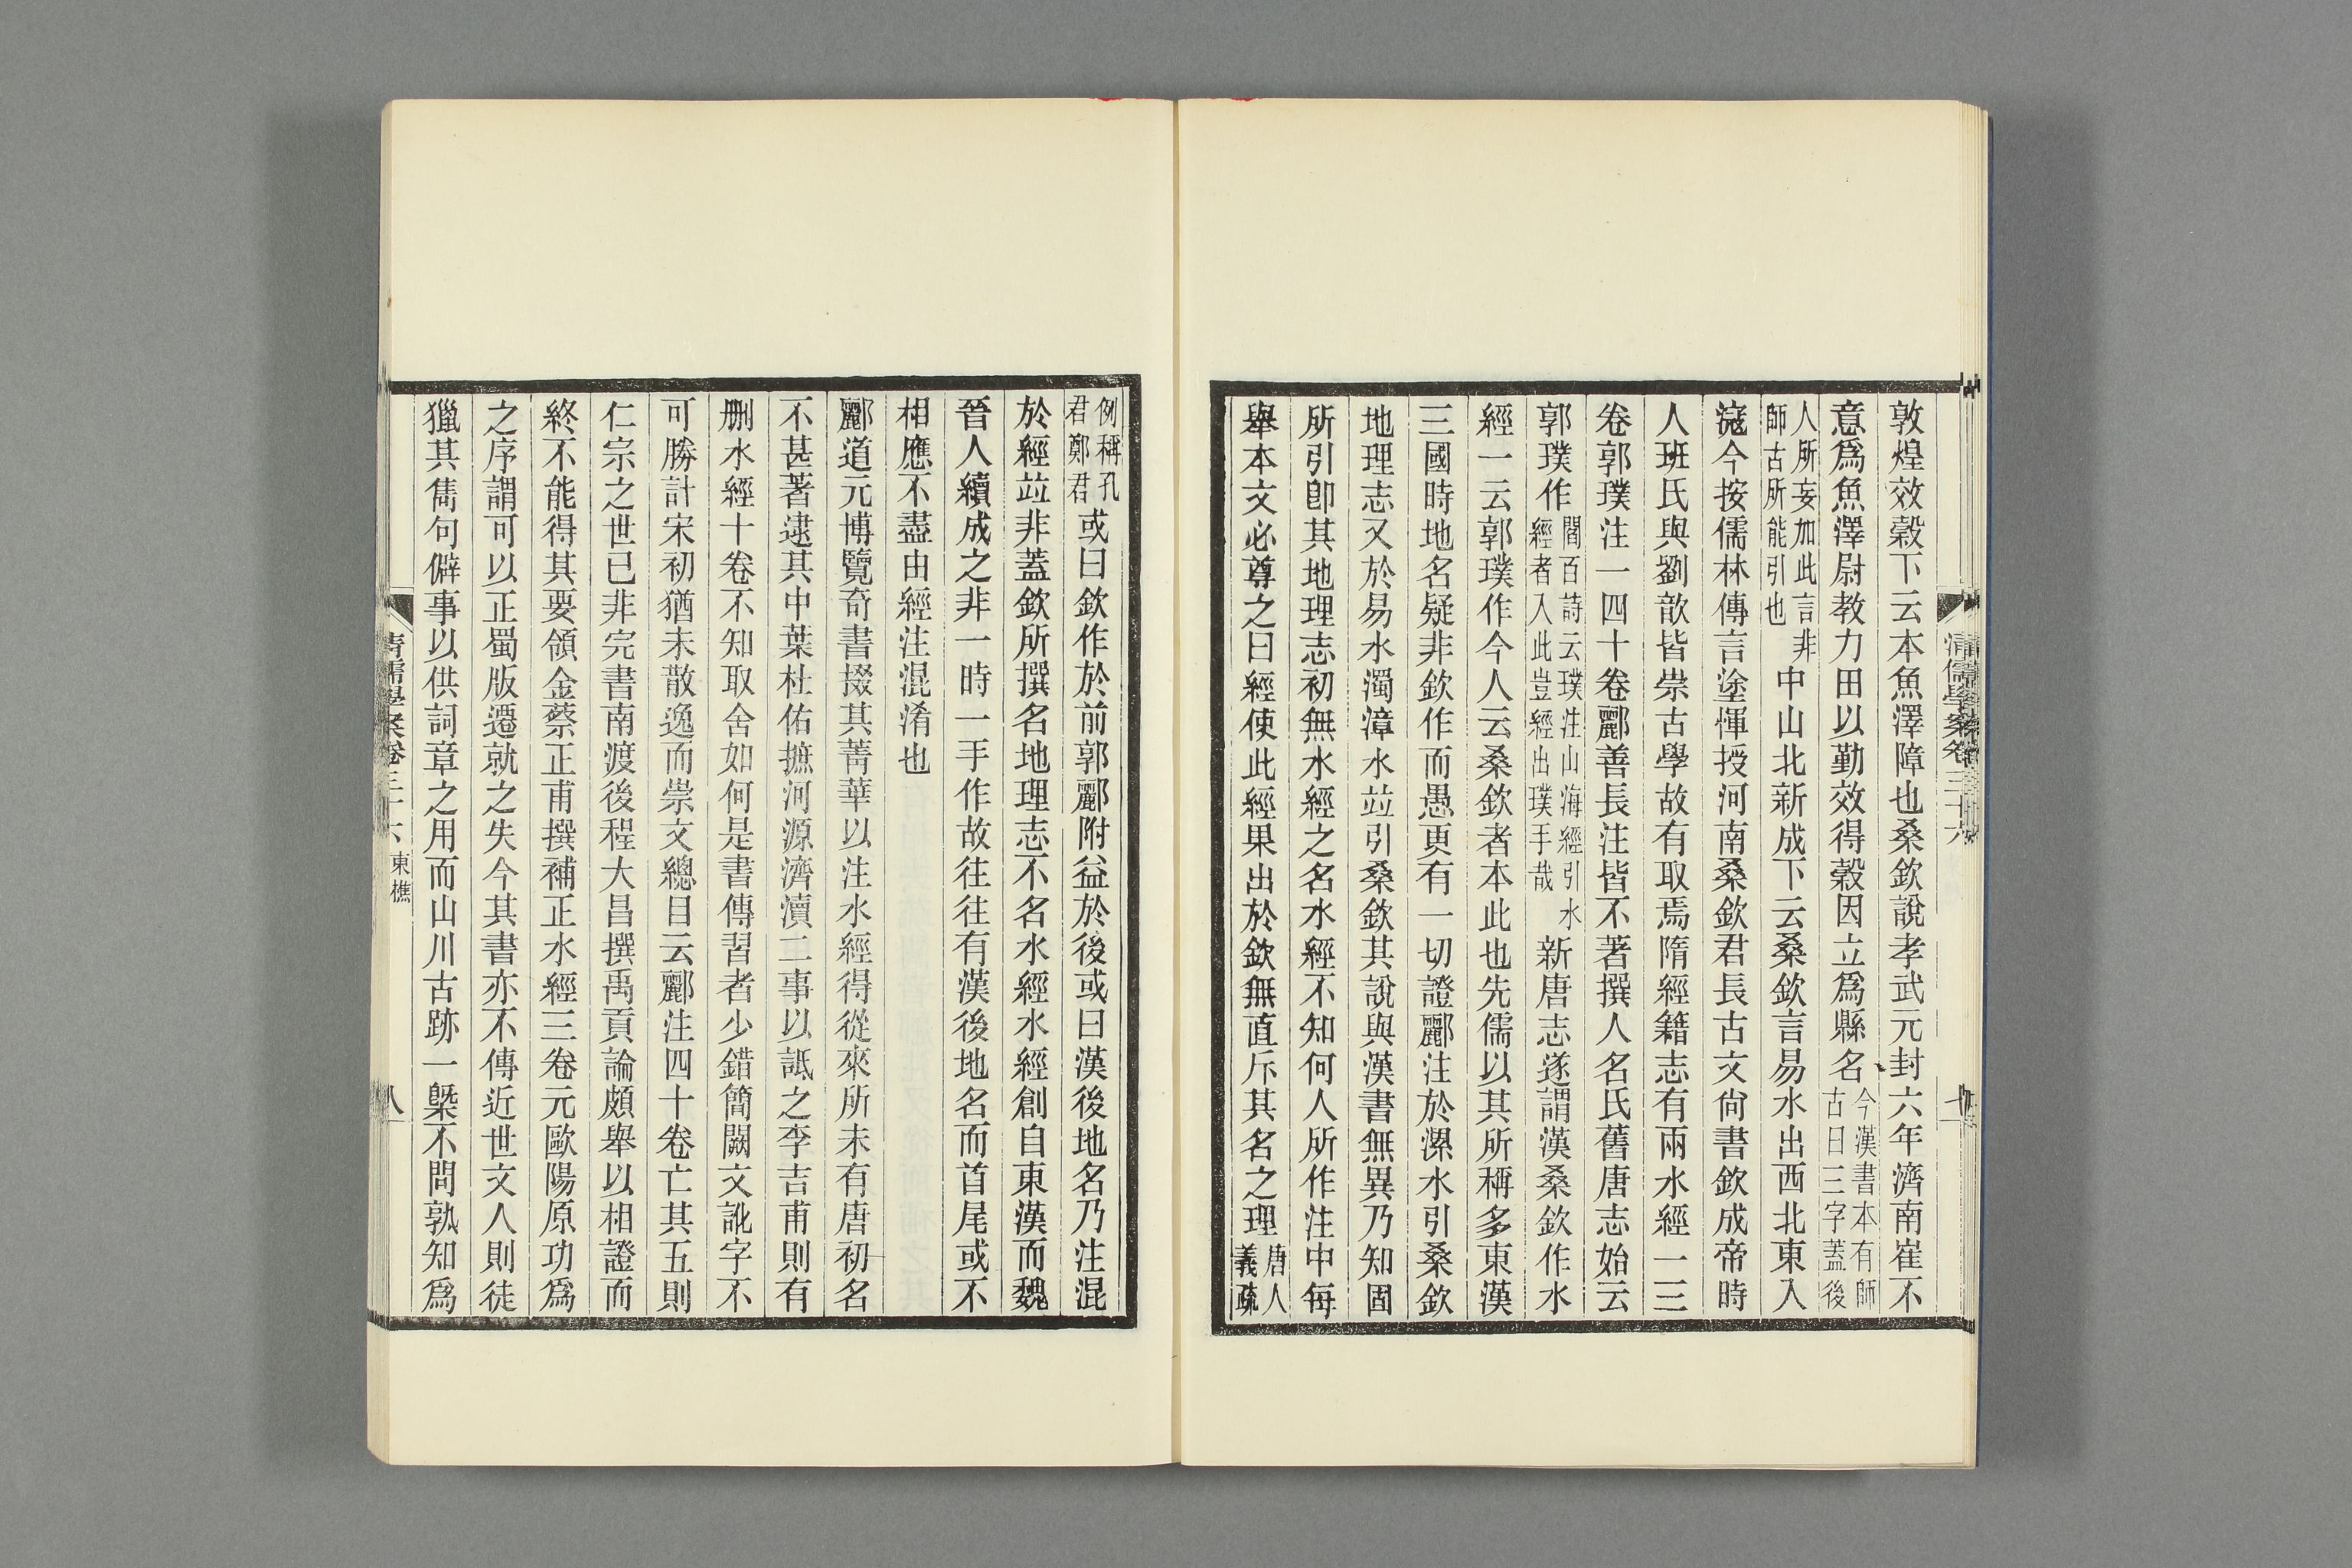 敦煌效穀下云本魚澤障也桑欽說孝武元封六年濟南崔不
意爲魚澤尉教力田以勤效得穀因立爲縣名今漢書本有師古曰三字蓋後
人所妄加此言非師古所能引也中山北新成下云桑欽言易水出西北東入
滱今按儒林傳言塗惲授河南桑欽君長古文尙書欽成帝時
人班氏與劉歆皆崇古學故有取焉隋經籍志有兩水經一三
卷郭璞注一四十卷酈善長注皆不著撰人名氏舊唐志始云
郭璞作閻百詩云璞注山海經引水經者入此豈經出璞手哉新唐志遂謂漢桑欽作水
經一云郭璞作今人云桑欽者本此也先儒以其所稱多東漢
三國時地名疑非欽作而愚更有一切證酈注於漯水引桑欽
地理志又於易水濁漳水竝引桑欽其說與漢書無異乃知固
所引卽其地理志初無水經之名水經不知何人所作注中每
舉本文必尊之曰經使此經果出於欽無直斥其名之理唐人義疏
例稱孔君鄭君或曰欽作於前郭酈附益於後或曰漢後地名乃注混
於經竝非蓋欽所撰名地理志不名水經水經創自東漢而魏
晉人續成之非一時一手作故往往有漢後地名而首尾或不
相應不盡由經注混淆也
酈道元博覽奇書掇其菁華以注水經得從來所未有唐初名
不甚著逮其中葉杜佑摭河源濟瀆二事以詆之李吉甫則有
删水經十卷不知取舍如何是書傳習者少錯簡闕文訛字不
可勝計宋初猶未散逸而崇文總目云酈注四十卷亡其五則
仁宗之世已非完書南渡後程大昌撰禹貢論頗舉以相證而
終不能得其要領金蔡正甫撰補正水經三卷元歐陽原功爲
之序謂可以正蜀版遷就之失今其書亦不傳近世文人則徒
獵其雋句僻事以供詞章之用而山川古跡一槩不問孰知爲
清儒學案卷三十六 東樵
八